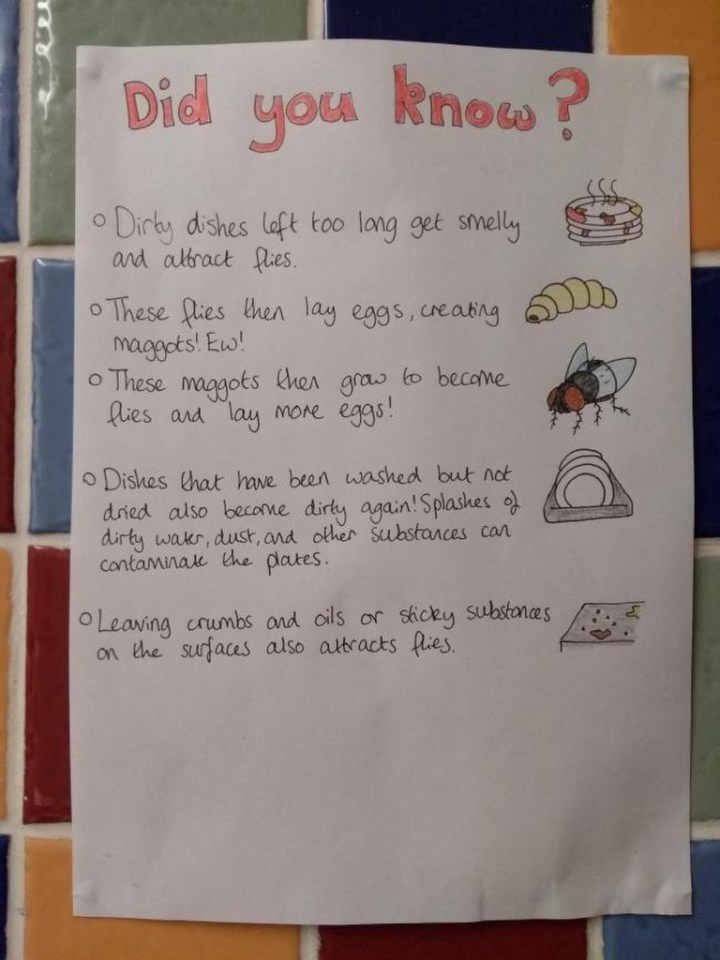 Did you know?
Dirty dishes left too long get smelly
and attract flies.
These flies then lay eggs, creating
maggots! Ew!
These maggots then grow to become
flies and lay more eggs!
Dishes that have been washed but not
dried also become dirty again! Splashes of
dirty water, dust, and other substances can
contaminate the plates.
Leaving crumbs and oils or sticky substances
on the surfaces also attracts flies.